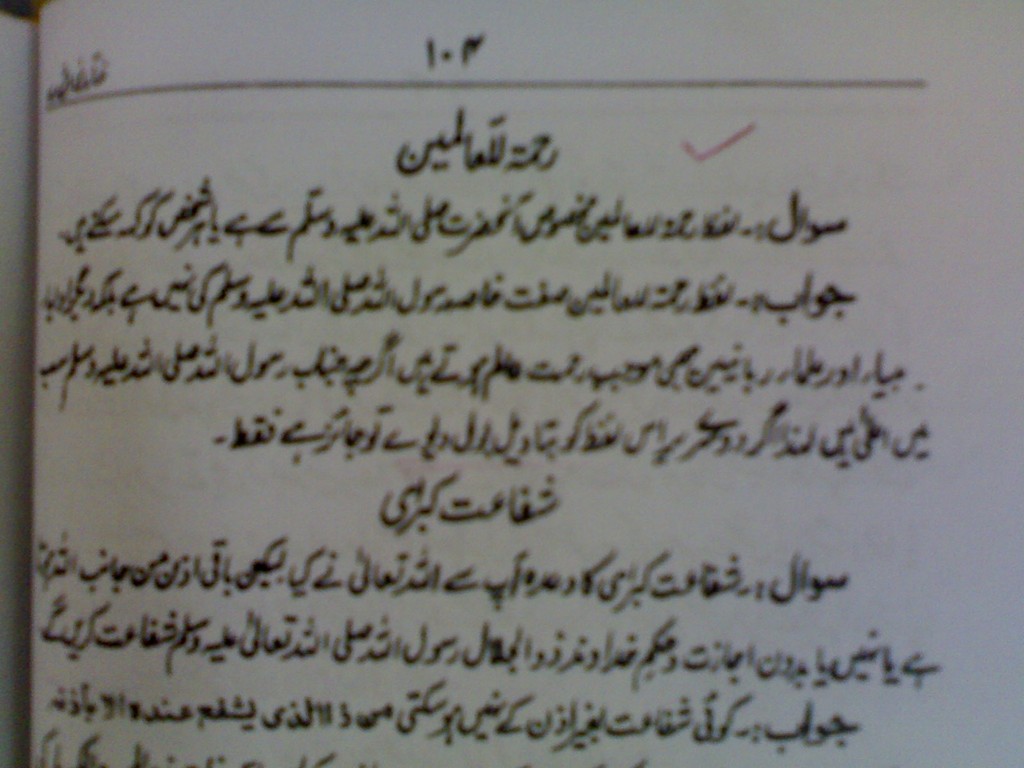 ۱۰۴
رحمۃ للعالمین
سوال:۔ لفظ رحمۃ للعالمین مخصوص آنحضرت صلی اللہ علیہ وسلم سے ہے یا ہر شخص کو کہہ سکتے ہیں۔
جواب:۔ لفظ رحمۃ للعالمین صفت خاصہ رسول اللہ صلی اللہ علیہ وسلم کی نہیں ہے بلکہ دیگر اولیاء
و انبیاء اور علماء ربانیین بھی موجب رحمت عالم ہوتے ہیں اگرچہ جناب رسول اللہ صلی اللہ علیہ وسلم سب
میں اعلیٰ ہیں لہذا اگر دوسرے پر اس لفظ کو بتاویل بول دیوے تو جائز ہے فقط۔
شفاعت کبریٰ
سوال:۔ شفاعت کبریٰ کا وعدہ آپ سے اللہ تعالیٰ نے کیا لیکن باقی اذن من جانب اللہ
ہے یا نہیں یا بدون اجازت و حکم خداوند ذوالجلال رسول اللہ صلی اللہ تعالیٰ علیہ وسلم شفاعت کریں گے
جواب:۔ کوئی شفاعت بغیر اذن کے نہیں ہو سکتی من ذا الذی یشفع عندہ الا باذنہ